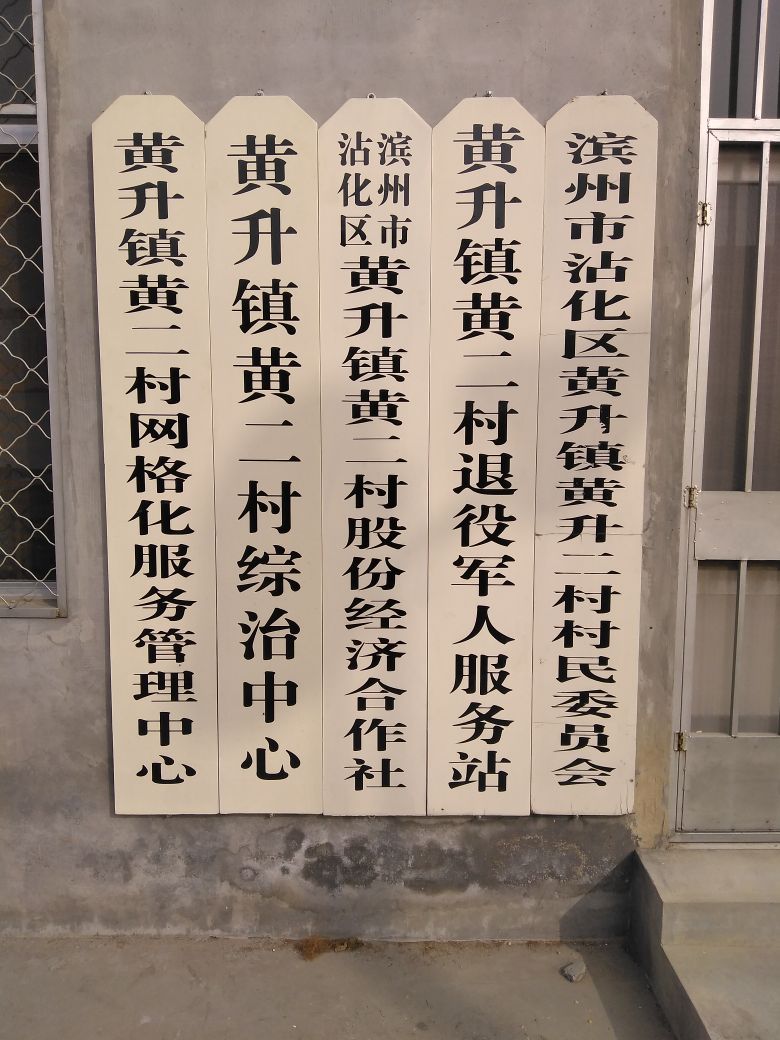 滨州市沾化区黄升镇黄升二村村民委员会
黄升镇黄二村退役军人服务站
滨州市
沾化区
黄升镇黄二村股份经济合作社
黄升镇黄二村综治中心
黄升镇黄二村网格化服务管理中心